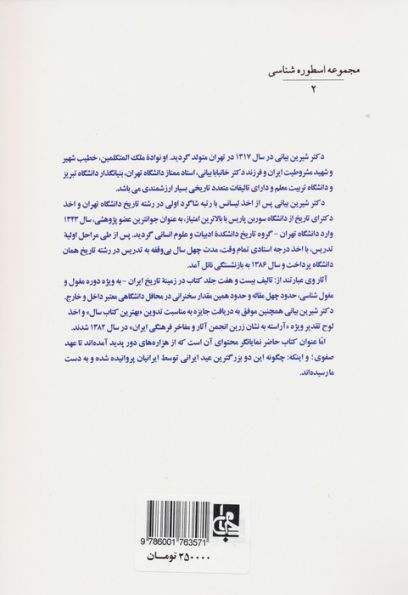 مجموعه اسطوره شناسی
۲
دکتر شیرین بیانی در سال ۱۳۱۷ در تهران متولد گردید. او نوادهٔ ملک المتکلمین، خطیب شهیر
و شهید مشروطیت ایران و فرزند دکتر خانبابا بیانی، استاد ممتاز دانشگاه تهران، بنیانگذار دانشگاه تبریز
و دانشگاه تربیت معلم و دارای تالیفات متعدد تاریخی بسیار ارزشمندی می باشد.
دکتر شیرین بیانی پس از اخذ لیسانس با رتبه شاگرد اولی در رشته تاریخ دانشگاه تهران و اخذ
دکترای تاریخ از دانشگاه سوربن پاریس با بالاترین امتیاز، به عنوان جوانترین عضو پژوهشی، سال ۱۳۴۳
وارد دانشگاه تهران - گروه تاریخ دانشکدهٔ ادبیات و علوم انسانی گردید. پس از طی مراحل اولیهٔ
تدریس، با اخذ درجه استادی تمام وقت، مدت چهل سال بی‌وقفه به تدریس در رشته تاریخ همان
دانشگاه پرداخت و سال ۱۳۸۶ به بازنشستگی نائل آمد.
آثار وی عبارتند از: تالیف بیست و هفت جلد کتاب در زمینهٔ تاریخ ایران - به ویژه دوره مغول و
مغول شناسی، حدود چهل مقاله و حدود همین مقدار سخنرانی در محافل دانشگاهی معتبر داخل و خارج.
دکتر شیرین بیانی همچنین موفق به دریافت جایزه به مناسبت تدوین «بهترین کتاب سال» و اخذ
لوح تقدیر ویژه «آراسته به نشان زرین انجمن آثار و مفاخر فرهنگی ایران»، در سال ۱۳۸۲ شدند.
امّا عنوان کتاب حاضر نمایانگر محتوای آن است که از هزاره‌های دور پدید آمده‌اند تا عهد
صفوی؛ و اینکه: چگونه این دو بزرگترین عید ایرانی توسط ایرانیان پروانیده شده و به دست
ما رسیده‌اند.
9 786001 763571
۲۵۰۰۰۰ تومــان